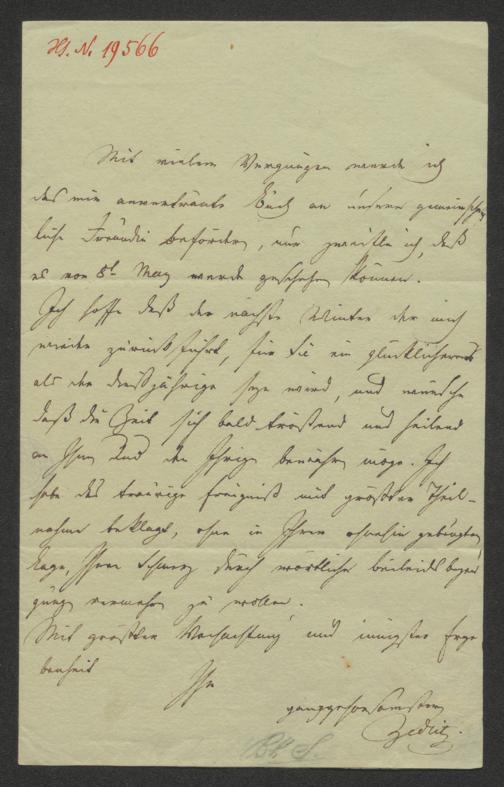 Hs. N. 19566
Mit vielem Vergnügen werde ich
das mir anvertraute Buch an unsere gemeinschaft
liche Freundin befördern, nur zweifle ich, daß
es vor 8t May werde geschehen können.
Ich hoffe daß der nächste Winter der mich
wieder zurückführt, für Sie ein glücklicherer
als der dießjährige seyn wird, und wünsche
daß die Zeit sich bald tröstend und heilend
an Ihnen und den Ihrigen bewähren möge. Ich
habe das traurige Ereigniß mit größter Theil-
nahme beklagt, ohne in Ihrer ohnehin gebeugten
Lage, Ihren Schmerz durch wörtliche Beileids bezeu
gung vermehren zu wollen.
Mit größter Hochachtung und innigster Erge
benheit
Ihr
ganz gehorsamster
Zedlitz.